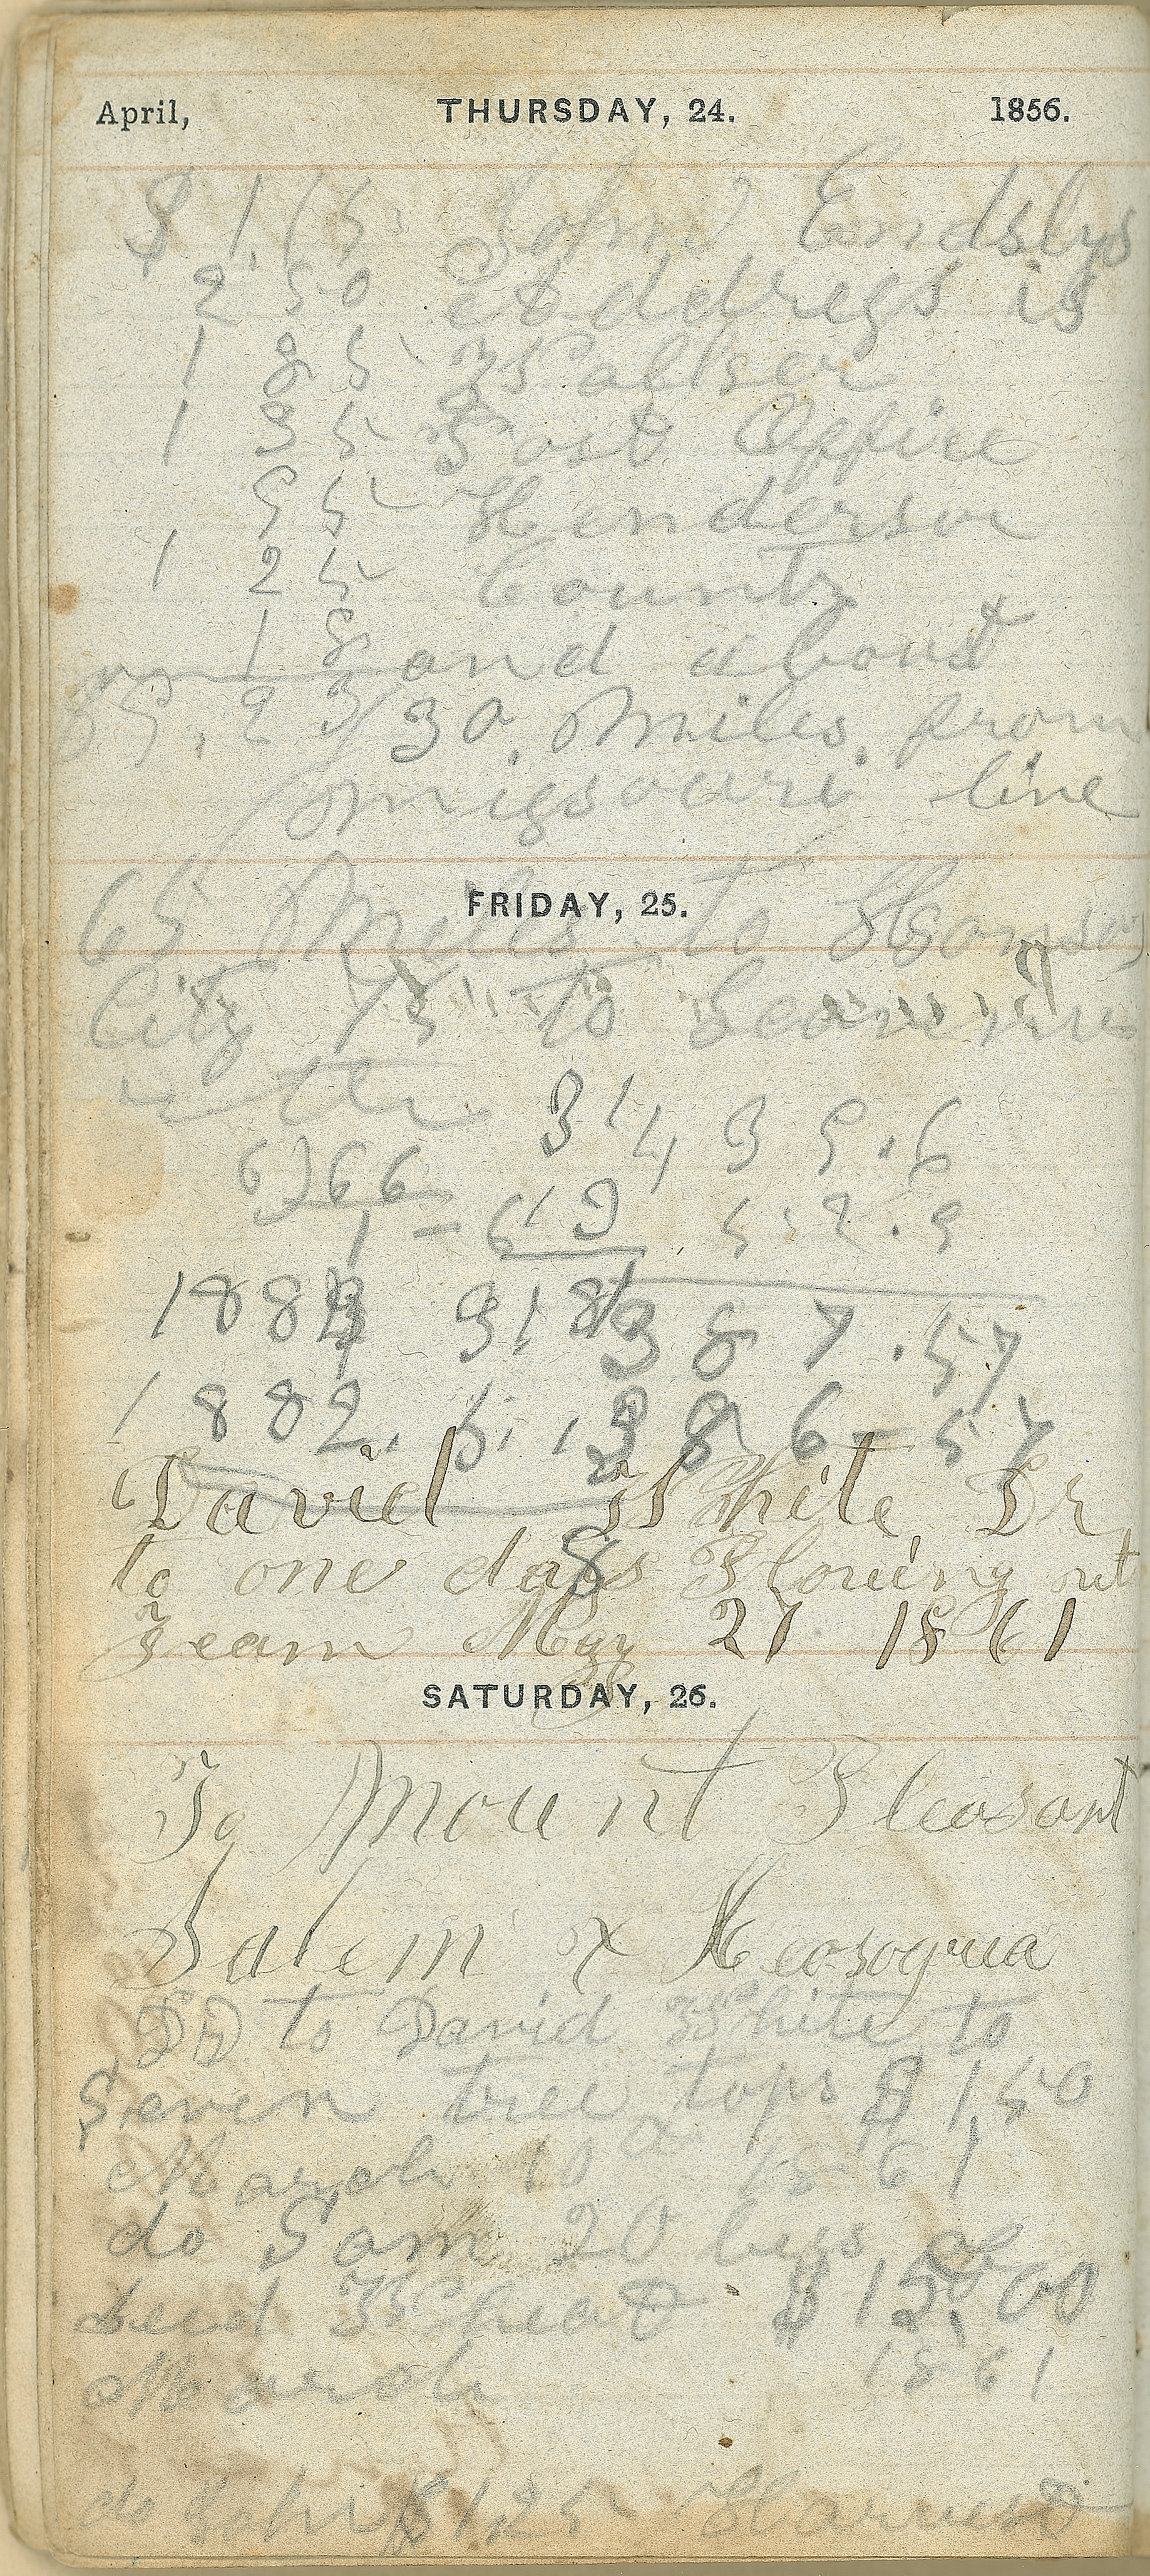 April, THURSDAY, 24. 1856.
$ 1.65 John Endslys
2 50 at ddress is
1 85 Walker
1 35 Post Opfice
95 Henderson
1 25 County
1 8 and about
2 3 30 Miles from
missouri line
FRIDAY, 25.
65 Miles to
City 75 to
3 14 3 9.6
6)66
1 - 6 12 5.2.9
188 91 8 3 8 7.57
1882. 6. 1 3 8 6 - 57
David White Dr
to one days Plowing
Team May 21 1861
SATURDAY, 26.
To Mount Pleasant
Salem & Keosoqua
to David White to
Seven tree tops $ 1 50
March 10 1861
do Sam 20 bus of
seed Wheat $ 15.00
March 1861
do 125 Harvest